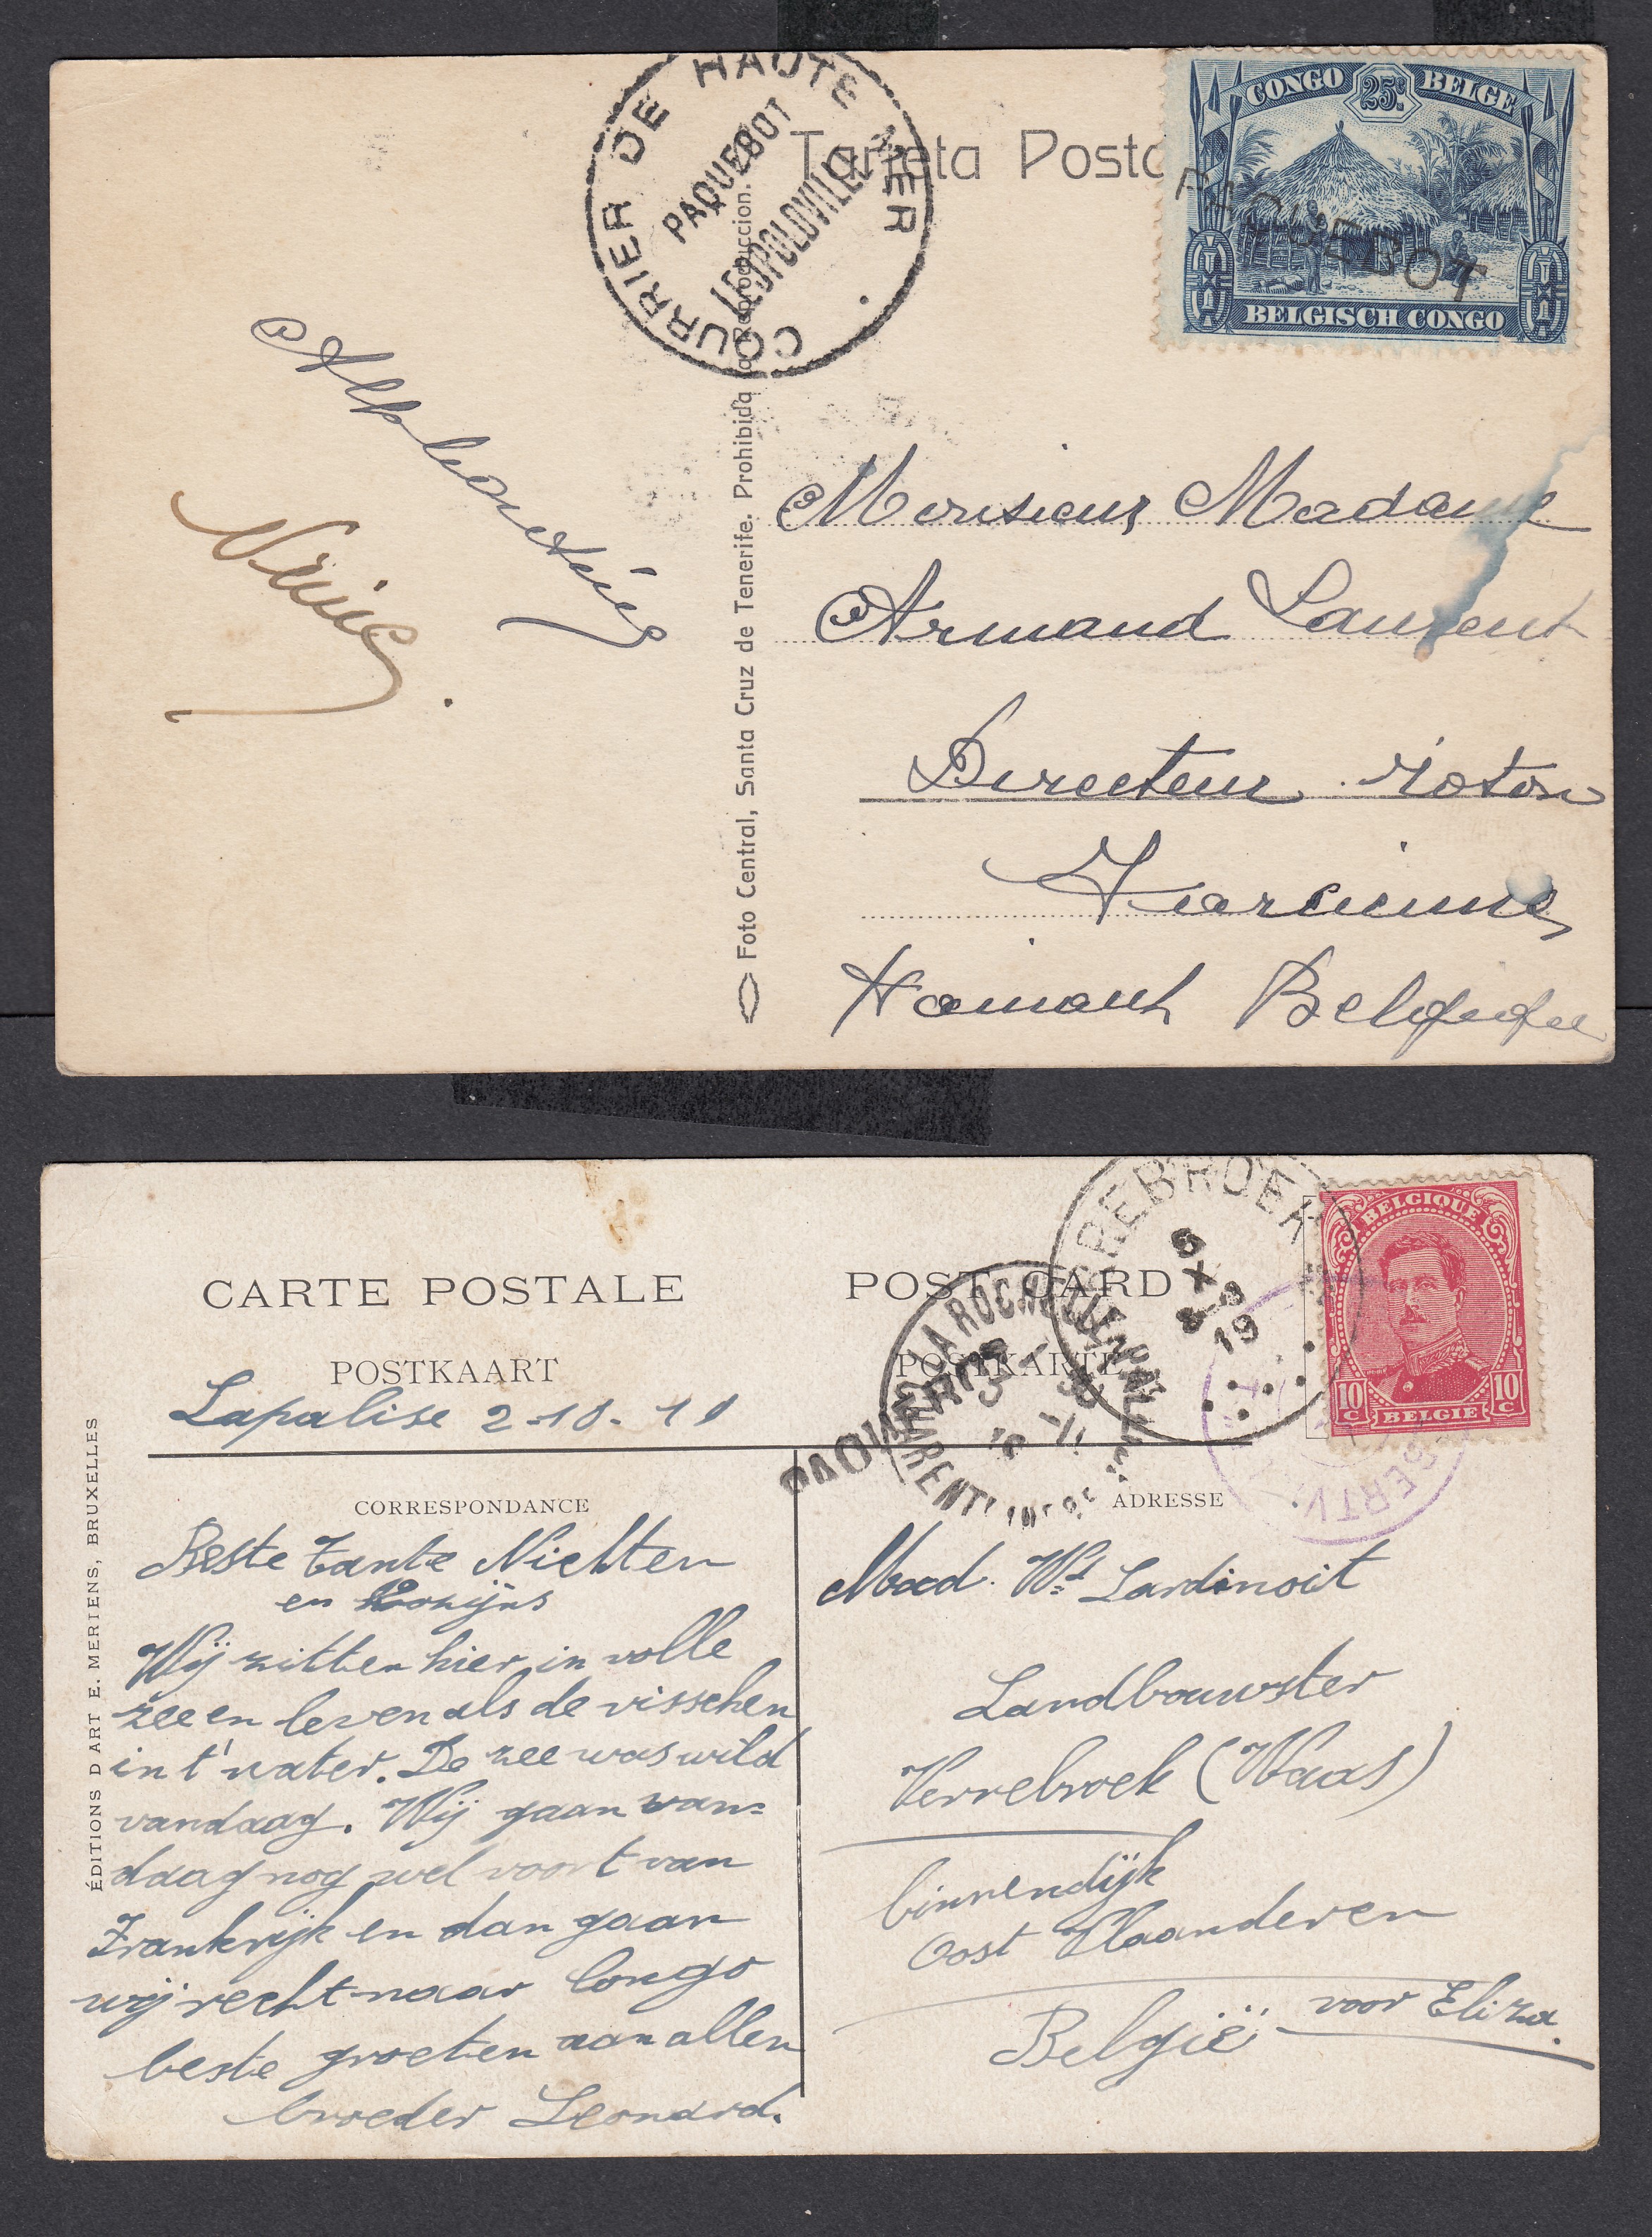 COURRIER DE HAUTE MER
PAQUEBOT
LEOPOLDVILLE
Tarjeta Posta
CONGO 25c. BELGE
PAQUEBOT
BELGISCH CONGO
Foto Central, Santa Cruz de Tenerife. Prohibida la Reproduccion.
Monsieur Madame
Armand Laurent
Directeur
Hainaut Belgique
CARTE POSTALE POST CARD
POSTKAART POSTKARTE
REBROEK
19
LA ROCHELLE
PAQUEBOT
BELGIQUE
10 C 10 C
BELGIË
Lapalise 2-10-19
CORRESPONDANCE
ADRESSE
ÉDITIONS D ART E. MERIENS, BRUXELLES
Beste Tante Nichten
en
Wij zitten hier in volle
zee en leven als de visschen
in t' water. De zee was wild
vandaag. Wij gaan van=
daag nog wel voort van
Frankrijk en dan gaan
wij recht naar Congo
beste groeten aan allen
broeder Leonard.
Mad. Wd Lardinoit
Landbouwster
Verrebroek (Waas)
binnendijk
Oost Vlaanderen
België voor Eliza.